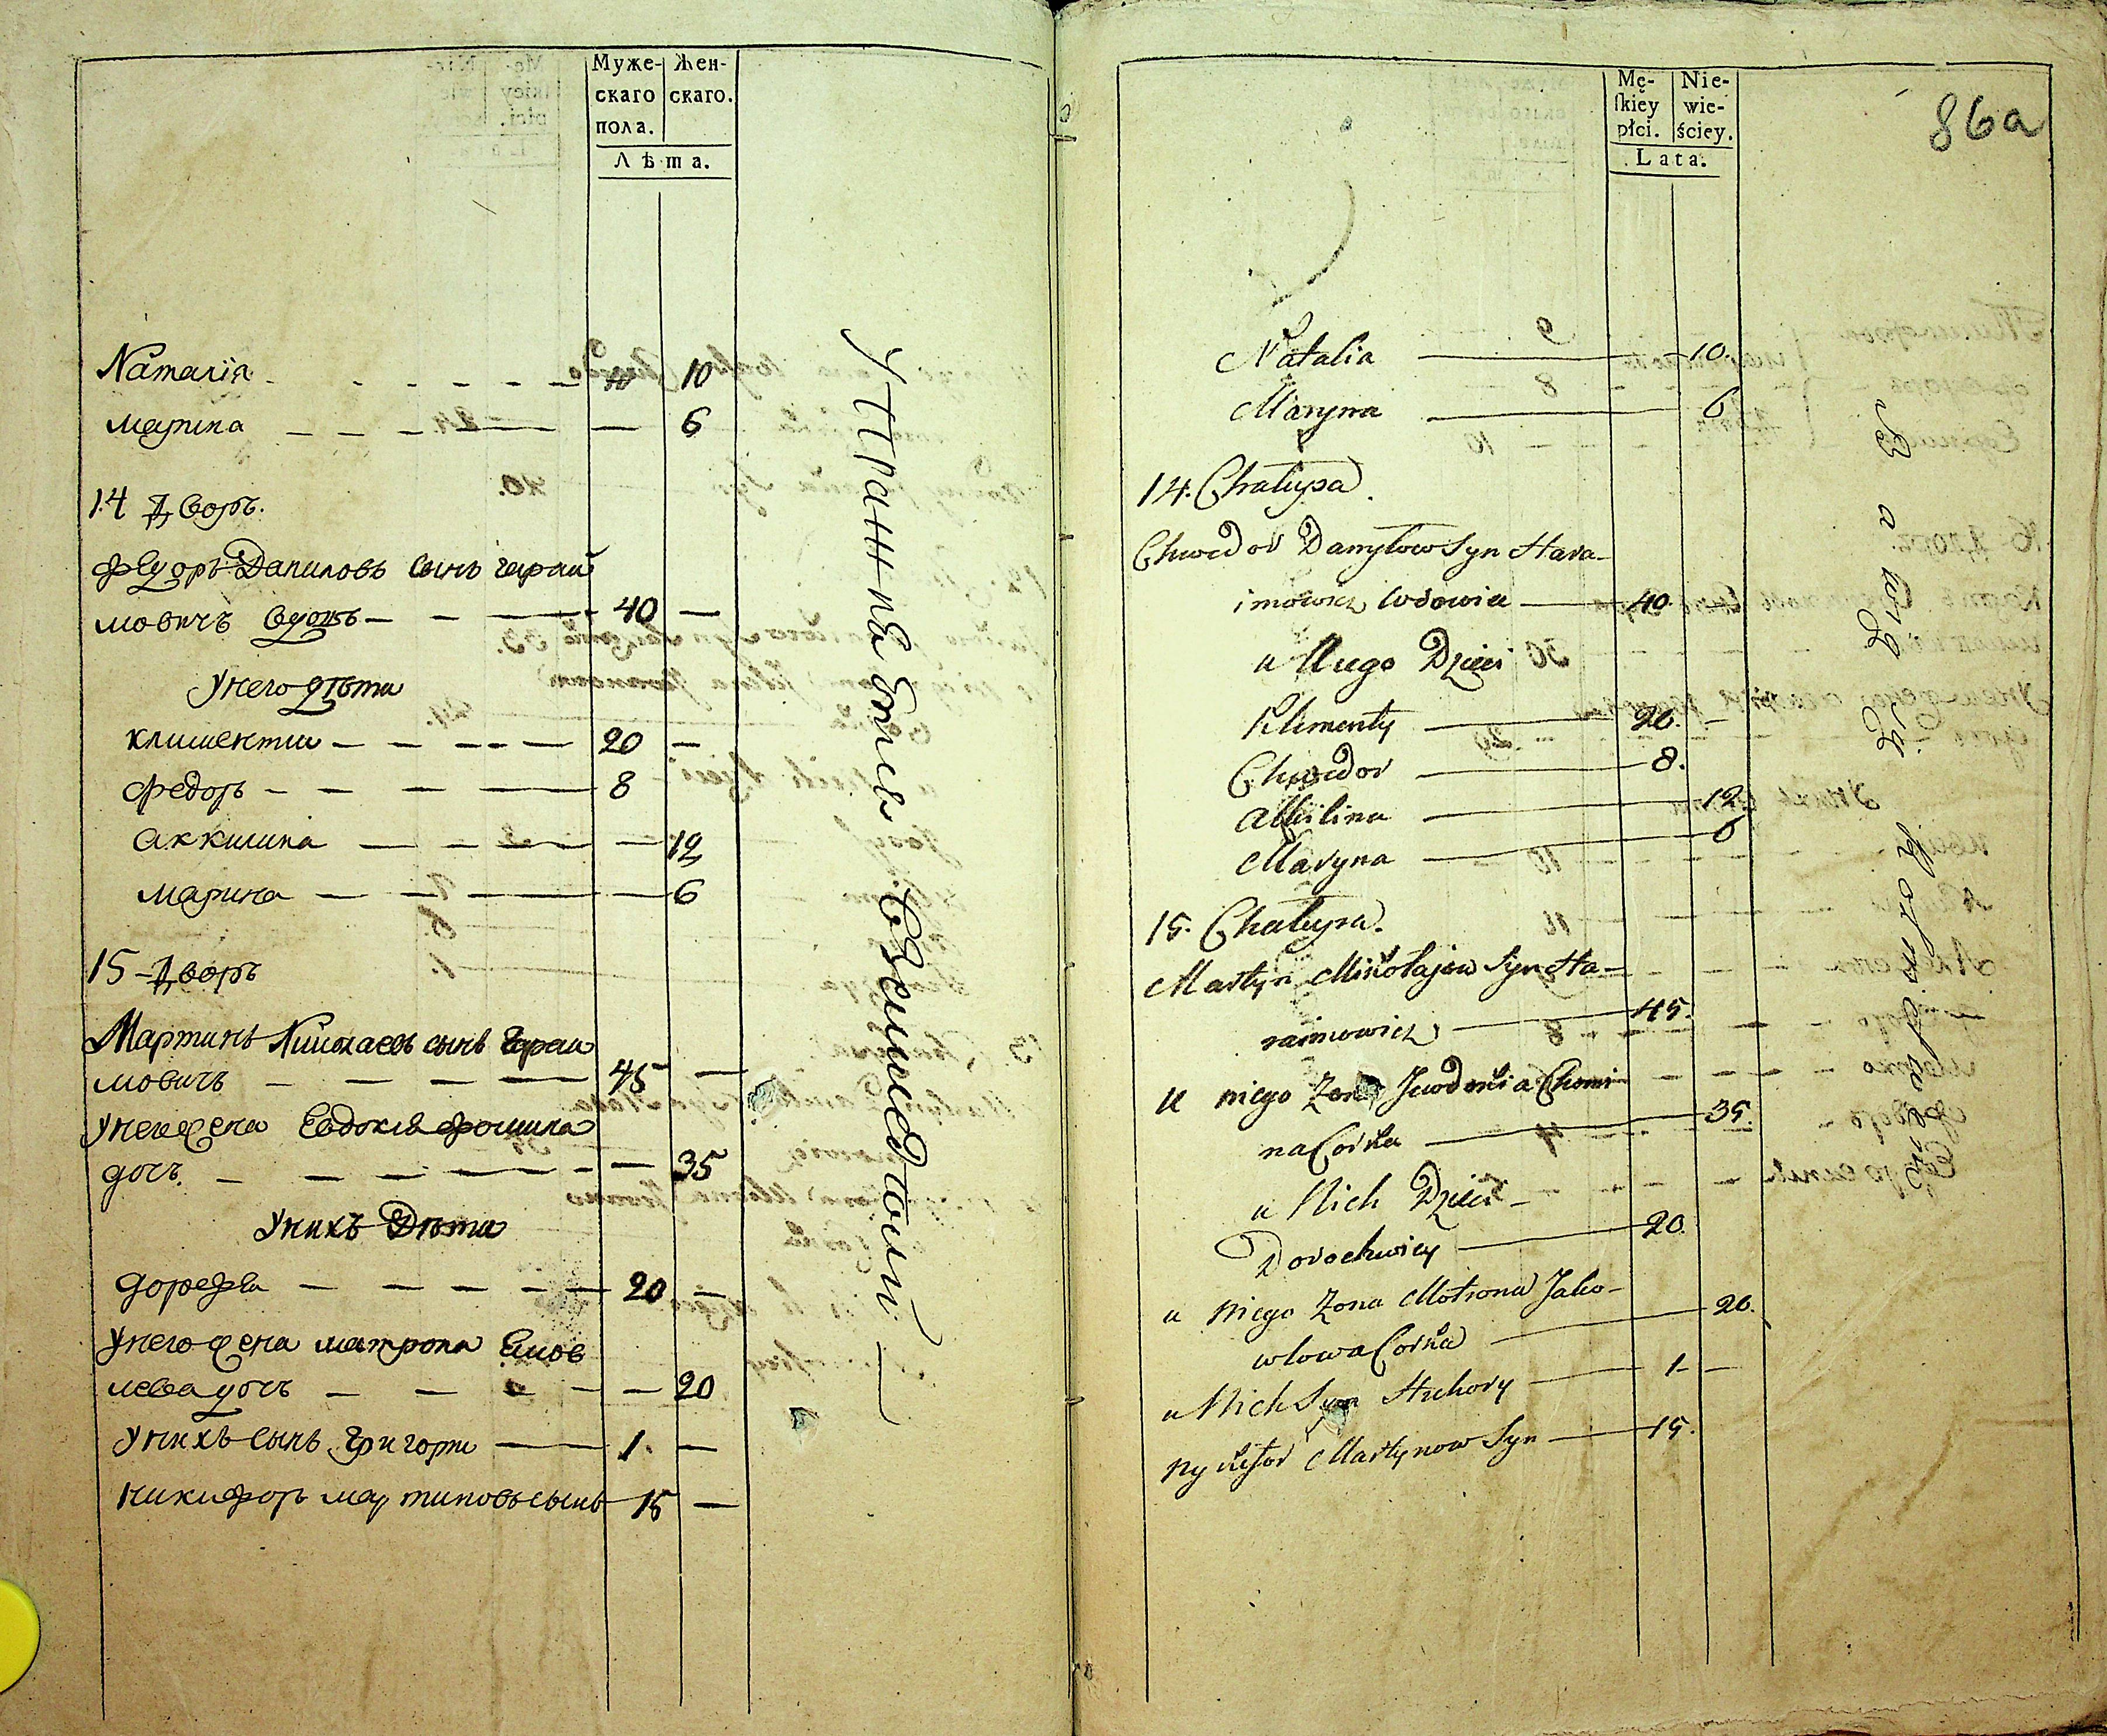 Муже-
скаго
пола.
Жен-
скаго.
Лѣта.
Наталiя 10 10
марина 6
14 Дворъ.
Федоръ Даниловъ сынъ гараи
мовичъ вдовъ 40
У него дѣти
климентии 20
Федоръ 8
Аккилина 12
марина 6
15 Дворъ
Мартинъ Николаевъ сынъ гараи
мовичъ 45
У него жена Евдокiя Фомина
дочь. 35
У нихъ Дѣти
дорофеи 20
У него жена матрона Яков
лева дочь 20
У нихъ сынъ Григории 1.
никифоръ мартиновъ сынъ 15
Mę-
skiey
płci.
Nie-
wie-
ściey.
Lata.
86a
Natalia 10.
Maryna 6
14. Chałupa.
Chwedor Danyłow Syn Hara-
imowicz Wdowiec 40.
u Niego Dzieci
Klimenty 20.
Chwedor 8.
Akilina 12.
Maryna 6
15. Chałupa.
Martyn Mikołajow Syn Ha-
raimowicz 45.
u niego Zona Jewdokia Chomi-
na Corka 35.
u Nich Dzieci
Dorochwiey 20.
u niego Zona Motrona Jako-
wlowa Corka 20.
u Nich Syn Hrehory 1
Nykifor Martynow Syn 15.